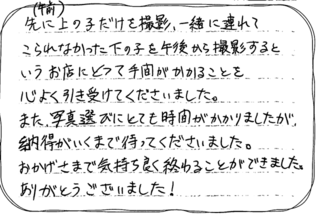 (午前)
先に上の子だけを撮影、一緒に連れて
こられなかった下の子を午後から撮影すると
いうお店にとって手間がかかることを
心よく引き受けてくださいました。
また、写真選びにとても時間がかかりましたが、
納得がいくまで待ってくださいました。
おかげさまで気持ち良く終わることができました。
ありがとうございました!